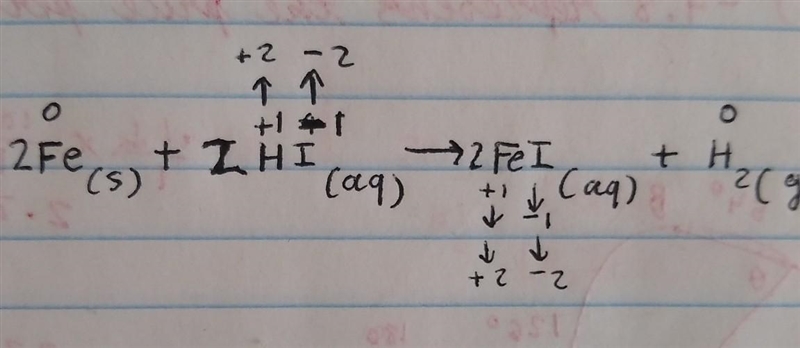 +2 -2
↑ ↑
0 +1 -1 0
2Fe(s) + 2 HI(aq) → 2FeI(aq) + H2(g
+1 ↓
↓ -1
↓ ↓
+2 -2